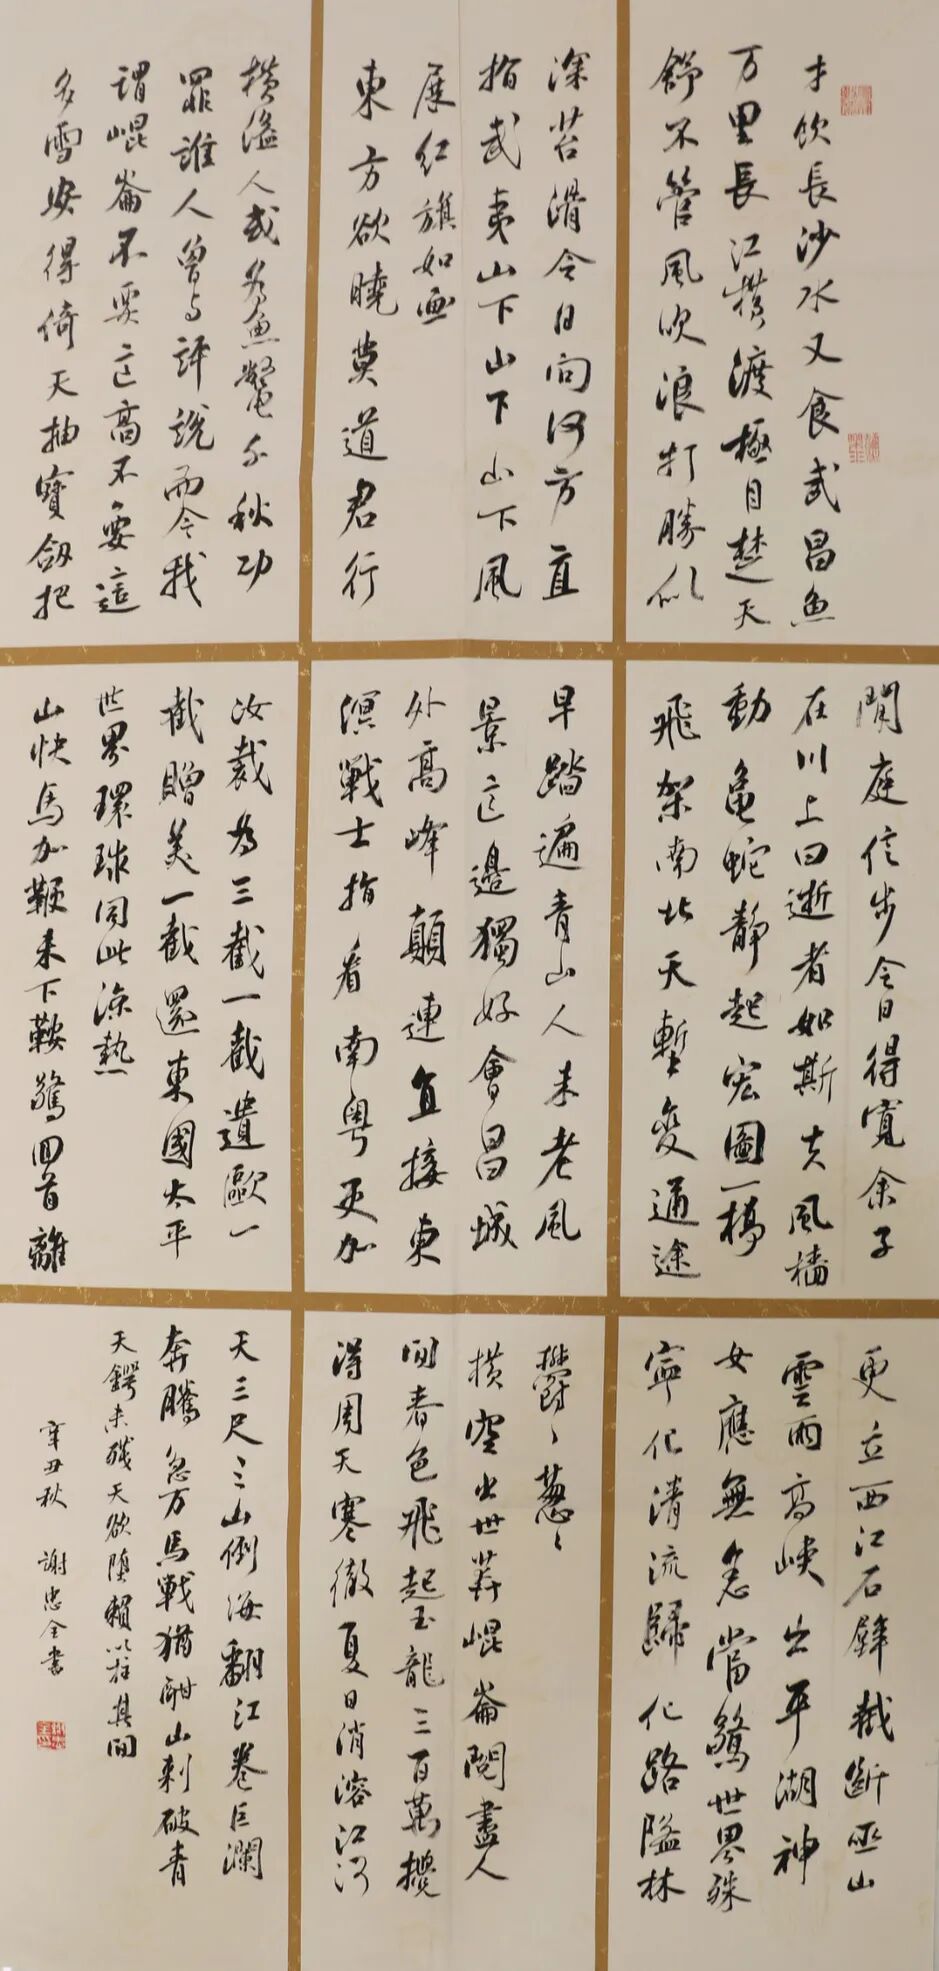 才飲長沙水又食武昌魚
万里長江横渡極目楚天
舒不管風吹浪打勝似
閒庭信步今日得寬余子
在川上曰逝者如斯夫風檣
動龜蛇靜起宏圖一橋
飛架南北天塹變通途
更立西江石壁截斷巫山
雲雨高峽出平湖神
女應無恙當驚世界殊
寧化清流歸化路隘林
深苔滑今日向何方直
指武夷山下山下山下風
展紅旗如画
東方欲曉莫道君行
早踏遍青山人未老風
景這邊獨好會昌城
外高峰顛連直接東
溟戰士指看南粤更加
鬱〻葱〻
横空出世莽崐崙閱盡人
間春色飛起玉龍三百萬攪
得周天寒徹夏日消溶江河
横溢人或為魚鱉千秋功
罪誰人曾与評說而今我
謂崐崙不要這高不要這
多雪安得倚天抽寶劔把
汝裁為三截一截遺歐一
截贈美一截還東國太平
世界環球同此涼熱
山快馬加鞭未下鞍驚回首離
天三尺三山倒海翻江卷巨瀾
奔騰急万馬戰猶酣山刺破青
天鍔未殘天欲墮賴以拄其間
辛丑秋 謝忠全書